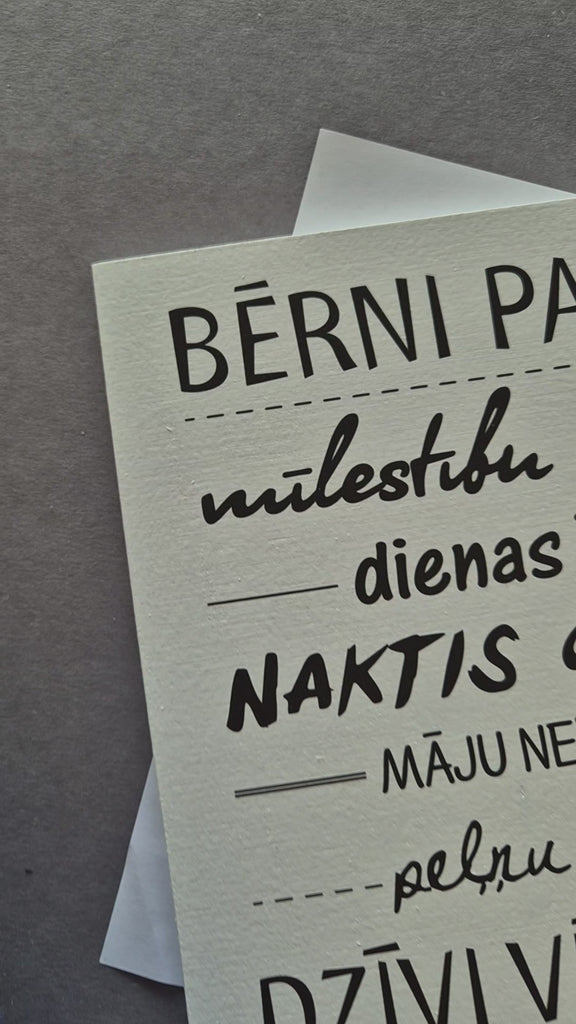 BĒRNI PA
mīlestību
dienas
NAKTIS
MĀJU NE
peļņu
DZĪVI V